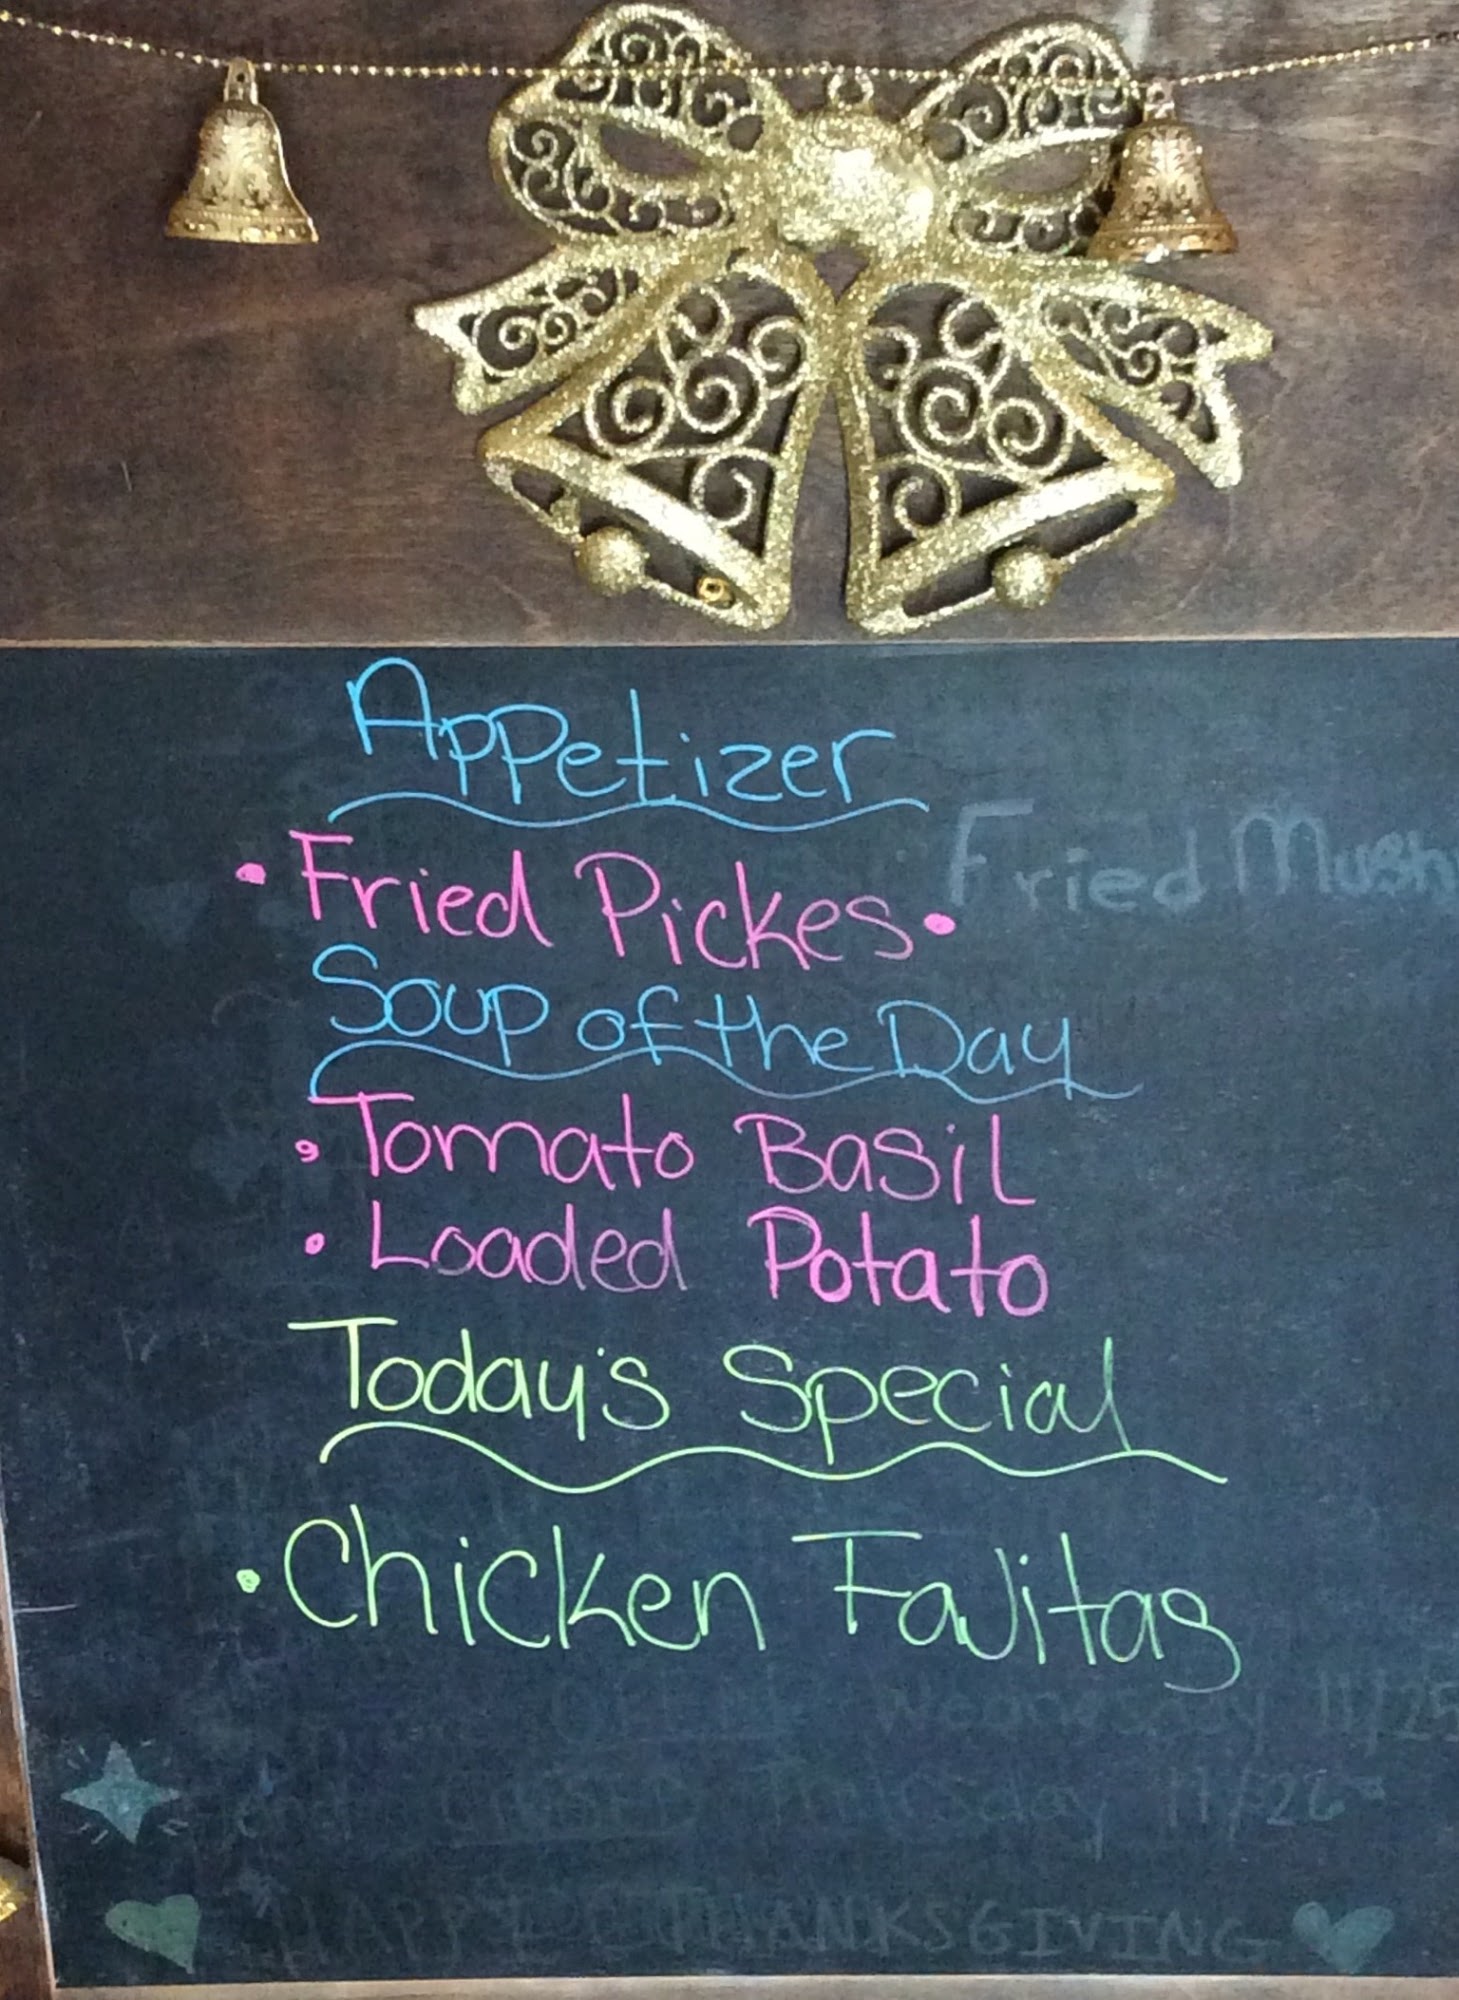 Appetizer
• Fried Pickes •
Fried Mush
Soup of the Day
• Tomato Basil
• Loaded Potato
Today's Special
• Chicken Fajitas
Wednesday 11/25
and CLOSED Thursday 11/26
HAPPY THANKSGIVING